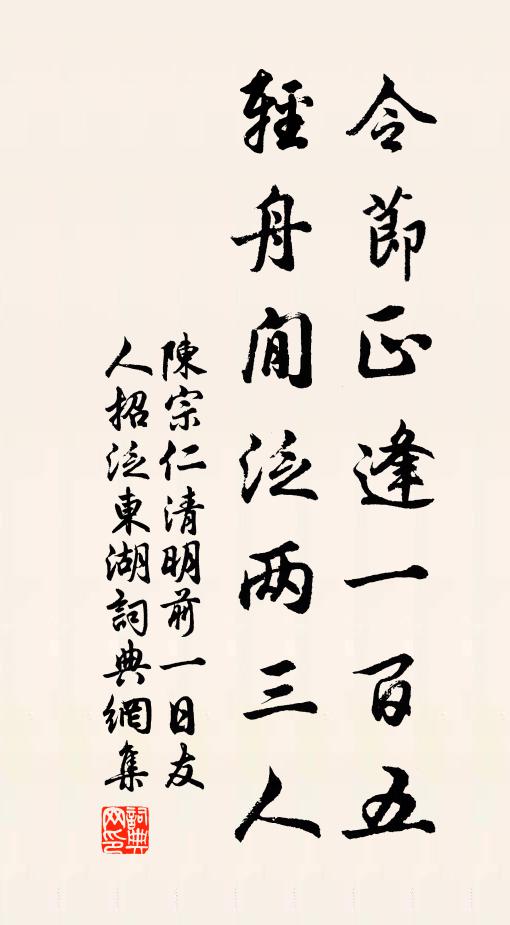 令節正逢一百五
輕舟閒泛两三人
陳宗仁清明前一日友
人招泛東湖詞典網集
詞典
网印